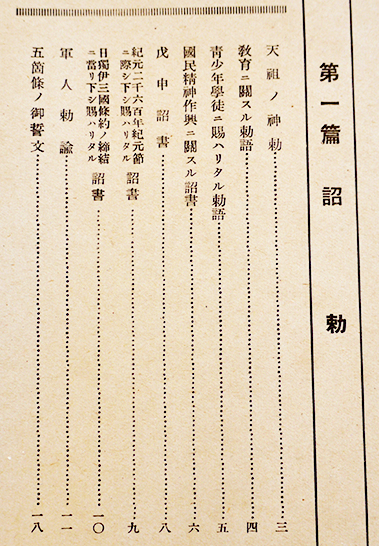 第一篇 詔勅
天祖ノ神勅……三
教育ニ關スル勅語……四
青少年學徒ニ賜ハリタル勅語……五
國民精神作興ニ關スル詔書……六
戊申詔書……八
紀元二千六百年紀元節
ニ際シ下シ賜ハリタル 詔書……九
日獨伊三國條約ノ締結
ニ當リ下シ賜ハリタル 詔書……一〇
軍人勅諭……一一
五箇條ノ御誓文……一八